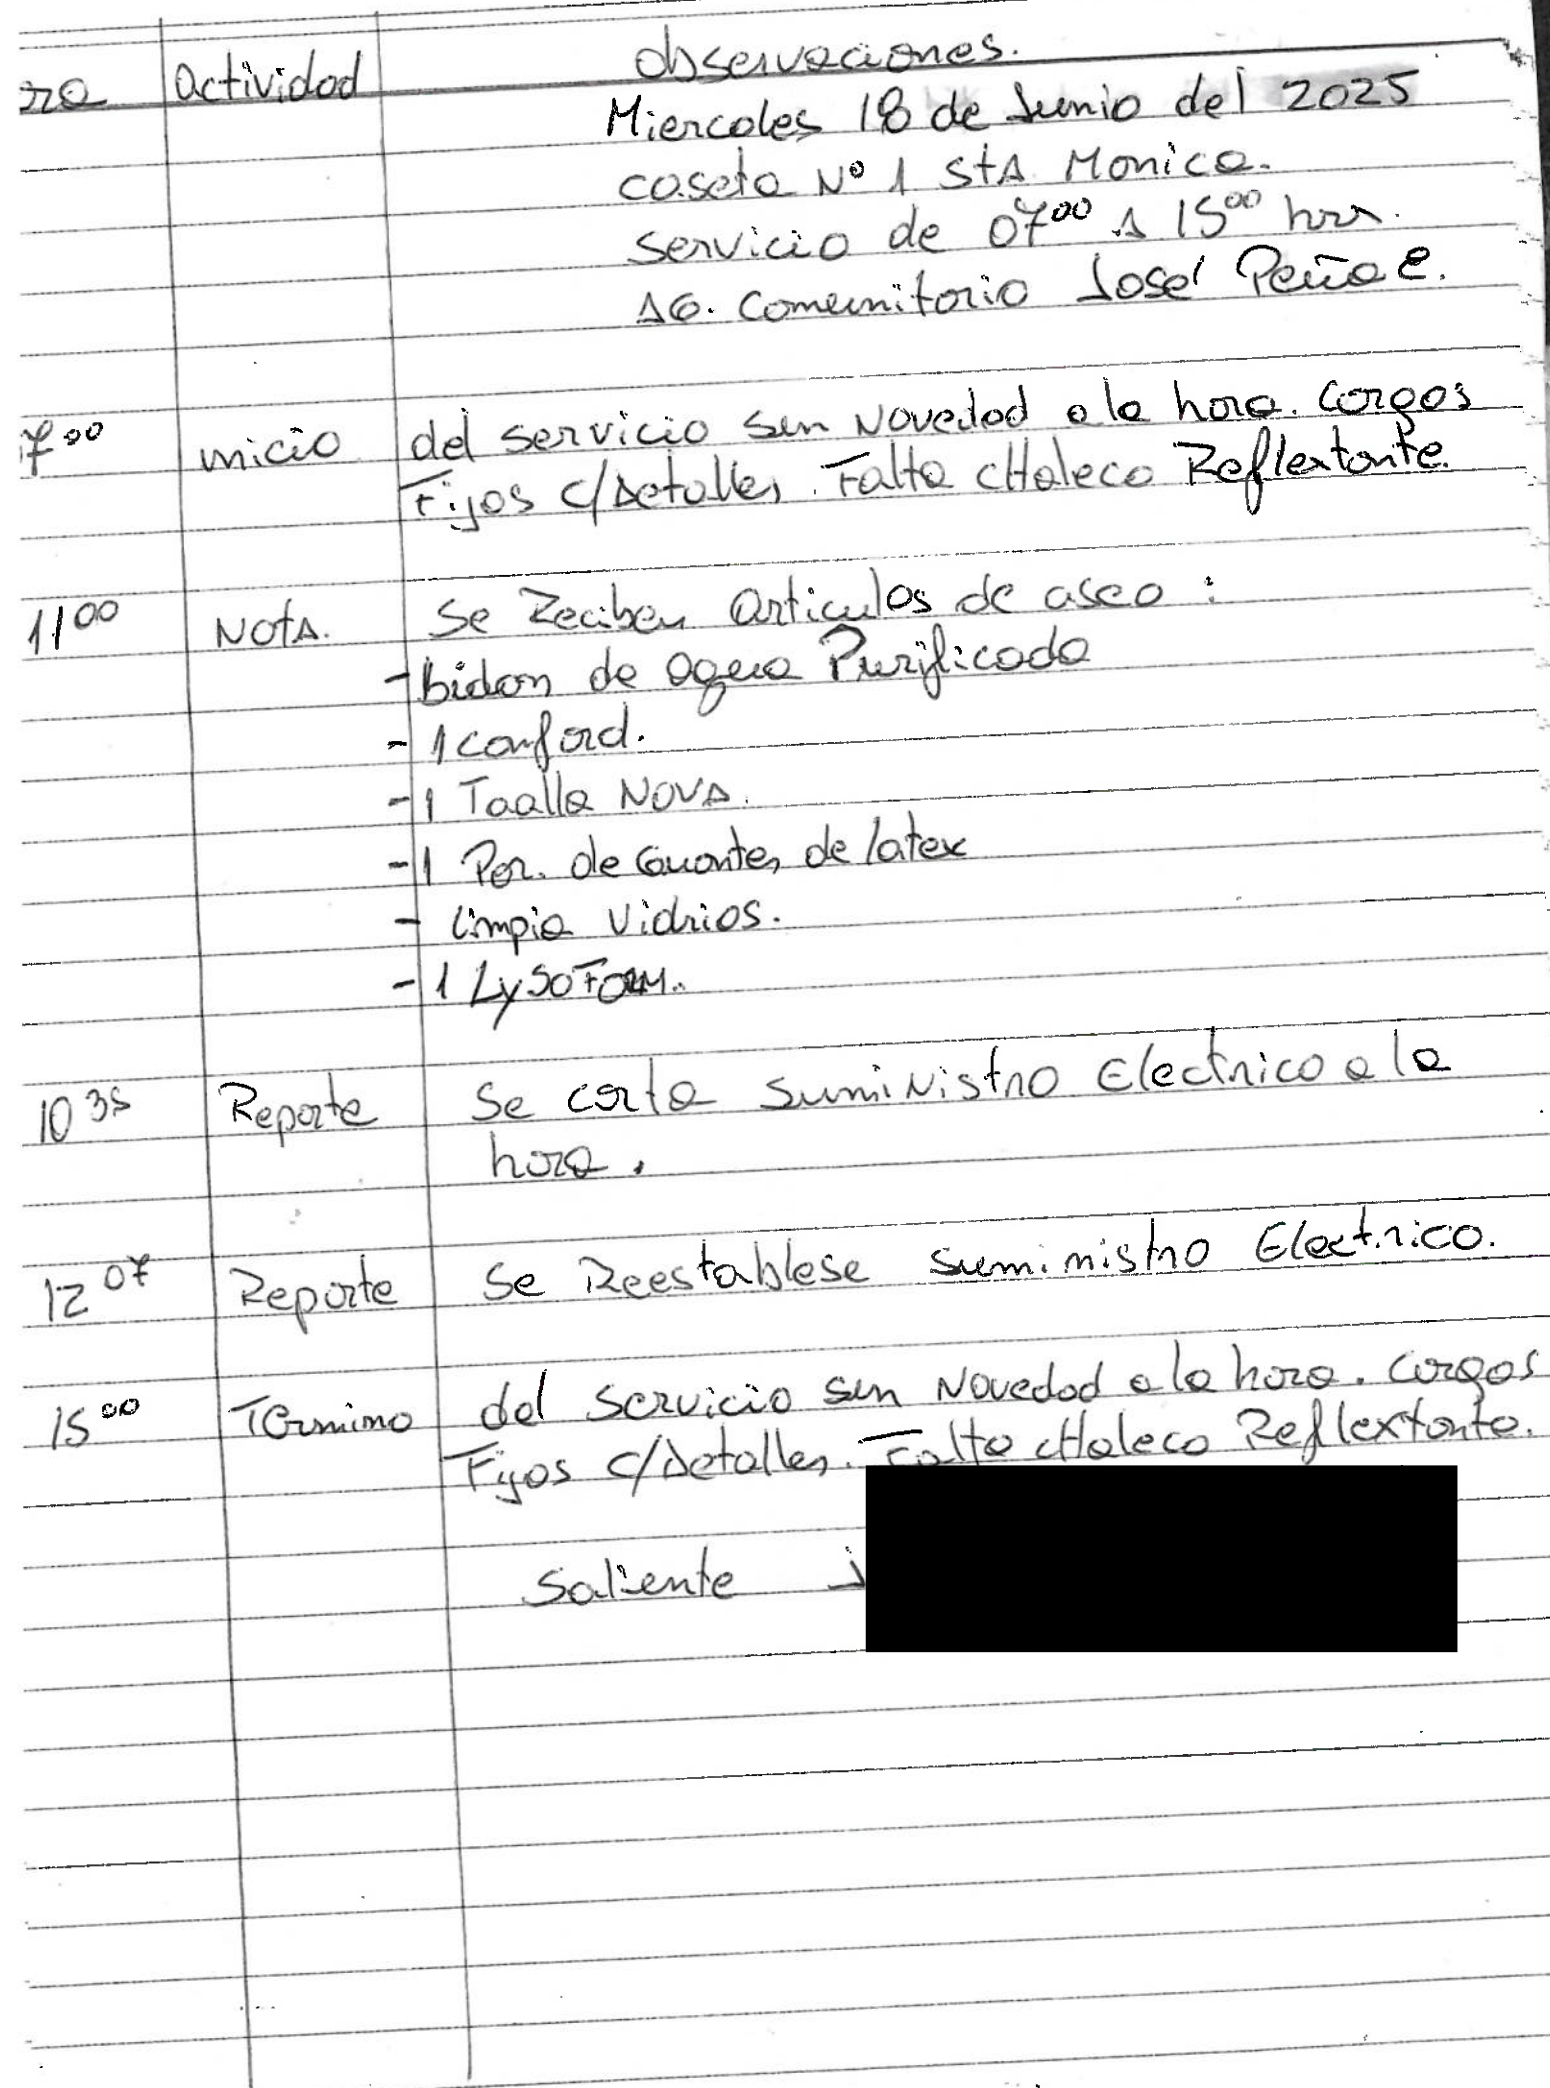 ora Actividad Observaciones.
Miercoles 18 de Junio del 2025
caseta Nº 1 StA Monica.
Servicio de 07⁰⁰ A 15⁰⁰ hrs.
AG. Comunitario José Peña E.
7⁰⁰ inicio del servicio sin Novedad a la hora. Cargos
Fijos c/Detalles. Falta cHaleco Reflextante.
11⁰⁰ NotA. Se Reciben articulos de aseo :
- bidon de agua Purificada
- 1 conford.
- 1 Toalla NOVA.
- 1 Par. de Guantes de latex
- Limpia Vidrios.
- 1 LySoForm.
10³⁵ Reporte Se corta SumiNistro Electrico a la
hora.
12⁰⁷ Reporte Se Reestablese Suministro Electrico.
15⁰⁰ Termino del servicio sin Novedad a la hora. Cargos
Fijos c/Detalles. Falta cHaleco Reflextante.
Saliente J